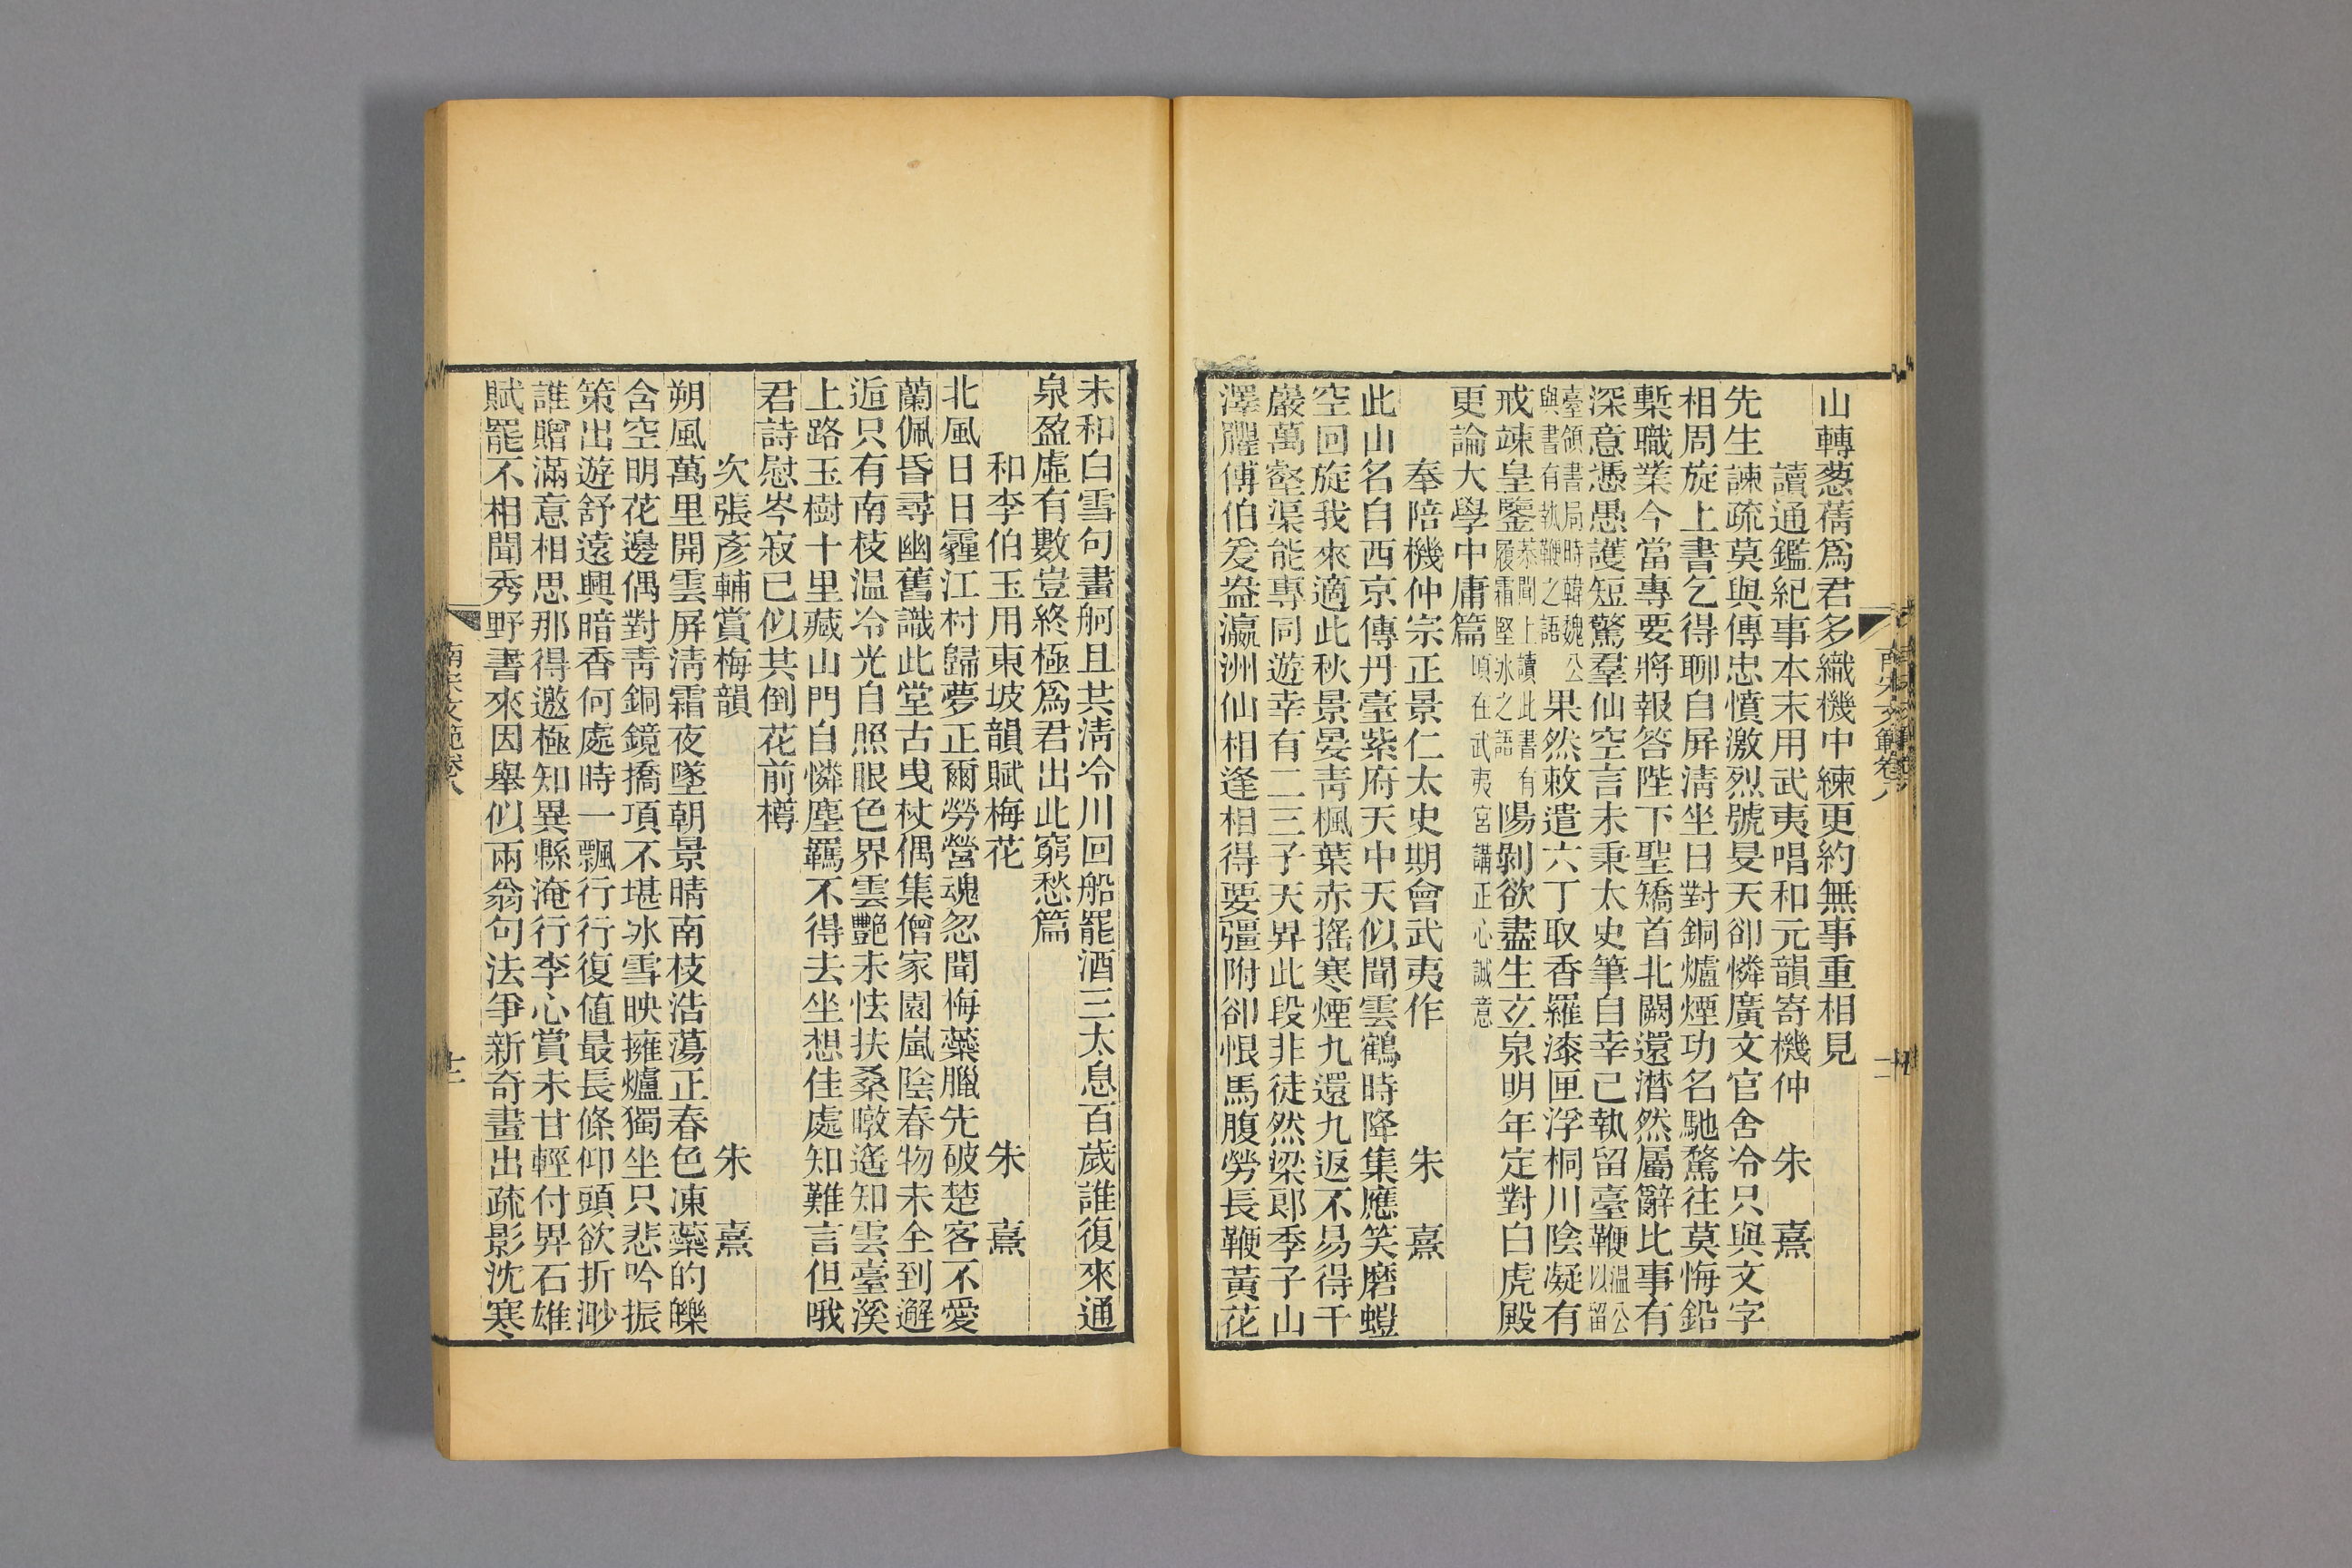 山轉葱蒨爲君多織機中練更約無事重相見
讀通鑑紀事本末用武夷唱和元韻寄機仲 朱熹
先生諫疏莫與傳忠憤激烈號旻天卻憐廣文官舍冷只與文字
相周旋上書乞得聊自屏淸坐日對銅爐煙功名馳騖往莫悔鉛
槧職業今當專要將報答陛下聖矯首北闕還潸然屬辭比事有
深意憑愚護短驚羣仙空言未秉太史筆自幸已執留臺鞭溫公以留
臺領書局時韓魏公與書有執鞭之語果然敕遣六丁取香羅漆匣浮桐川陰凝有
戒竦皇鑒恭聞上讀此書有履霜堅冰之語陽剝欲盡生玄泉明年定對白虎殿
更論大學中庸篇頃在武夷宮講正心誠意
奉陪機仲宗正景仁太史期會武夷作 朱熹
此山名自西京傳丹臺紫府天中天似聞雲鶴時降集應笑磨螘
空回旋我來適此秋景晏靑楓葉赤搖寒煙九還九返不易得千
巖萬壑渠能專同遊幸有二三子天界此段非徒然梁郎季子山
澤臞傅伯爰盎瀛洲仙相逢相得要彊附卻恨馬腹勞長鞭黃花
未和白雪句畫舸且共淸泠川回船罷酒三太息百歲誰復來通
泉盈虛有數豈終極爲君出此窮愁篇
和李伯玉用東坡韻賦梅花 朱熹
北風日日霾江村歸夢正爾勞營魂忽聞梅蘂臘先破楚客不愛
蘭佩昏尋幽舊識此堂古曳杖偶集僧家園嵐陰春物未全到邂
逅只有南枝温冷光自照眼色界雲艷未怯扶桑暾遙知雲臺溪
上路玉樹十里藏山門自憐塵羈不得去坐想佳處知難言但哦
君詩慰岑寂已似共倒花前樽
次張彥輔賞梅韻 朱熹
朔風萬里開雲屏淸霜夜墜朝景晴南枝浩蕩正春色凍蘂的皪
含空明花邊偶對靑銅鏡撟項不堪冰雪映擁爐獨坐只悲吟振
策出遊舒遠興暗香何處時一飄行行復值最長條仰頭欲折渺
誰贈滿意相思那得邀極知異縣淹行李心賞未甘輕付畀石雄
賦罷不相聞秀野書來因舉似兩翁句法爭新奇畫出疏影沈寒
南宋文範卷八
十二